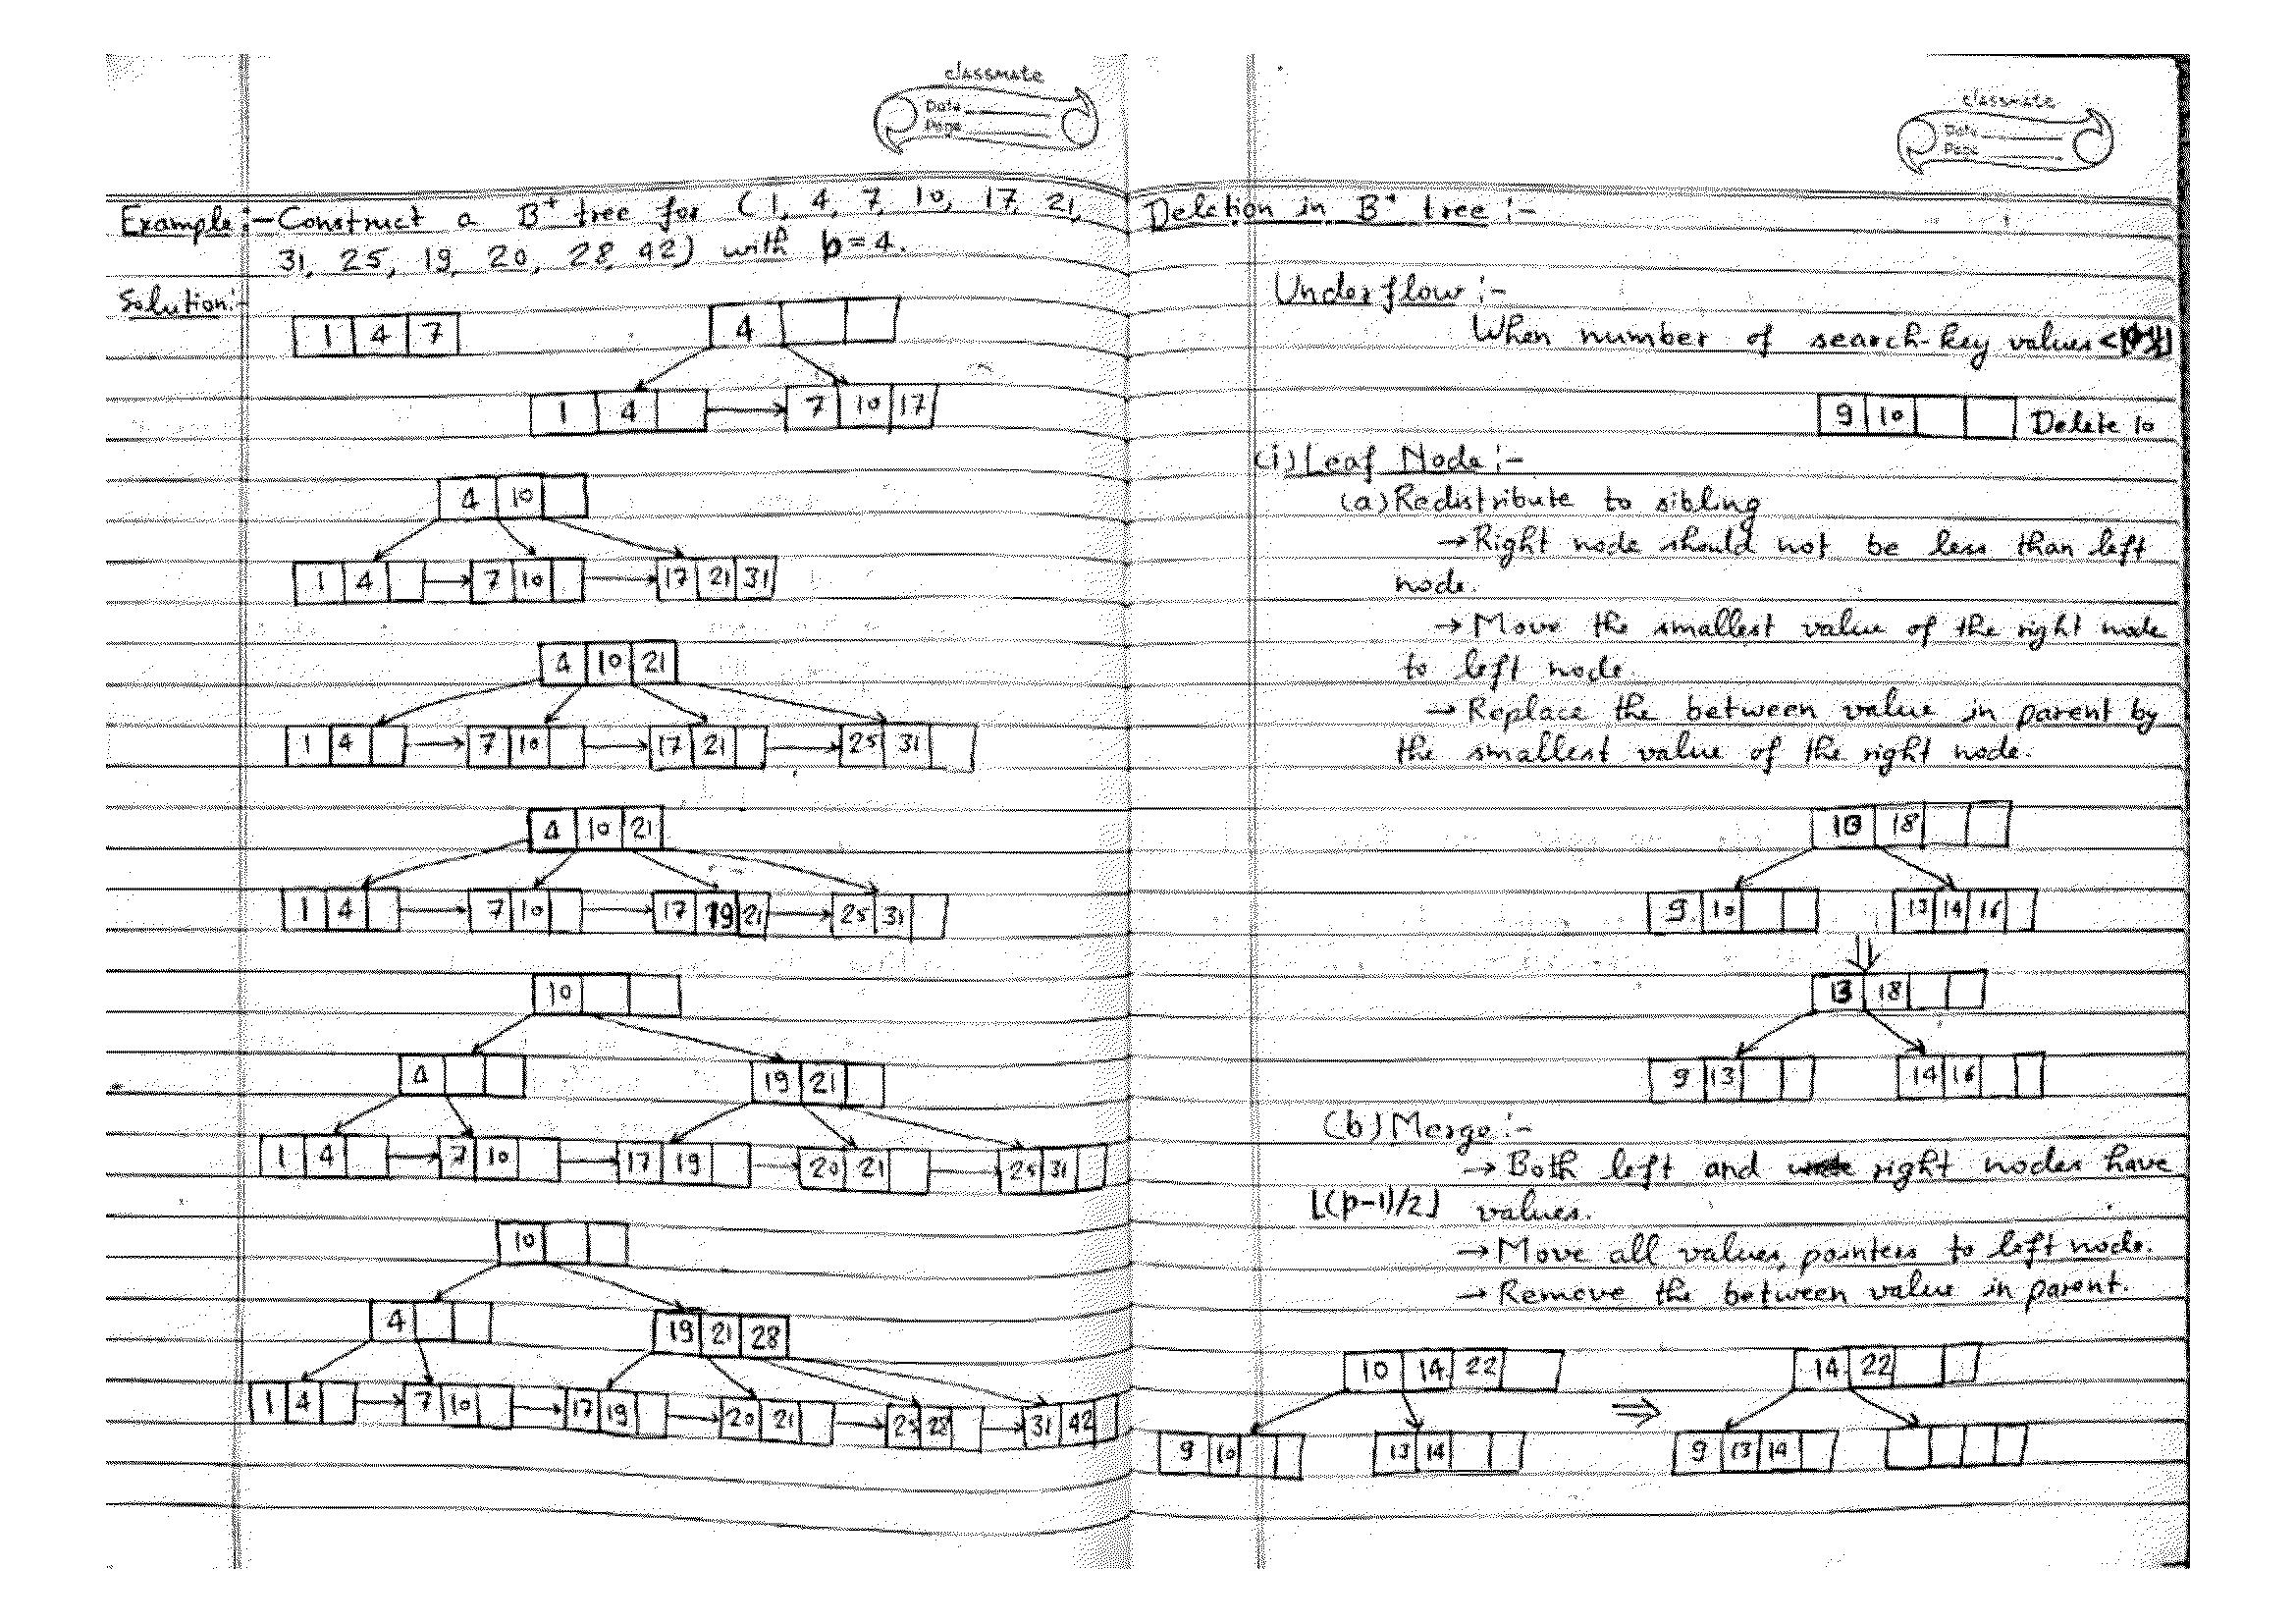 classmate
Date
Page
Example:- Construct a B+ tree for (1, 4, 7, 10, 17, 21,
31, 25, 19, 20, 28, 42) with p=4.
Solution:-
1 4 7
4
1 4 7 10 17
4 10
1 4 7 10 17 21 31
4 10 21
1 4 7 10 17 21 25 31
4 10 21
1 4 7 10 17 19 21 25 31
10
4 19 21
1 4 7 10 17 19 20 21 25 31
10
4 19 21 28
1 4 7 10 17 19 20 21 25 28 31 42
classmate
Date
Page
Deletion in B+ tree :-
Underflow :-
When number of search-key values <
9 10 Delete 10
(i) Leaf Node :-
(a) Redistribute to sibling
→ Right node should not be less than left
node.
→ Move the smallest value of the right node
to left node.
→ Replace the between value in parent by
the smallest value of the right node.
18
9 10 13 14 16
⇓
13 18
9 13 14 16
(b) Merge :-
→ Both left and right nodes have
⌊(p-1)/2⌋ values.
→ Move all values, pointers to left node.
→ Remove the between value in parent.
10 14 22 ⇒ 14 22
9 10 13 14 9 13 14